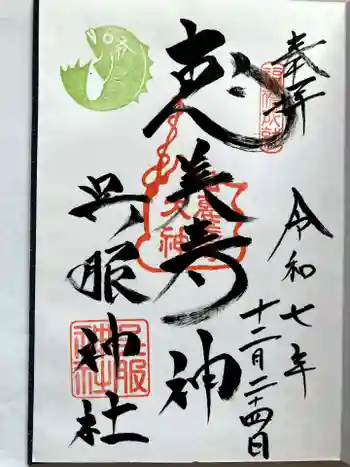 奉拝
令和七年
十二月二十四日
恵美寿神
呉服神社
呉服神社